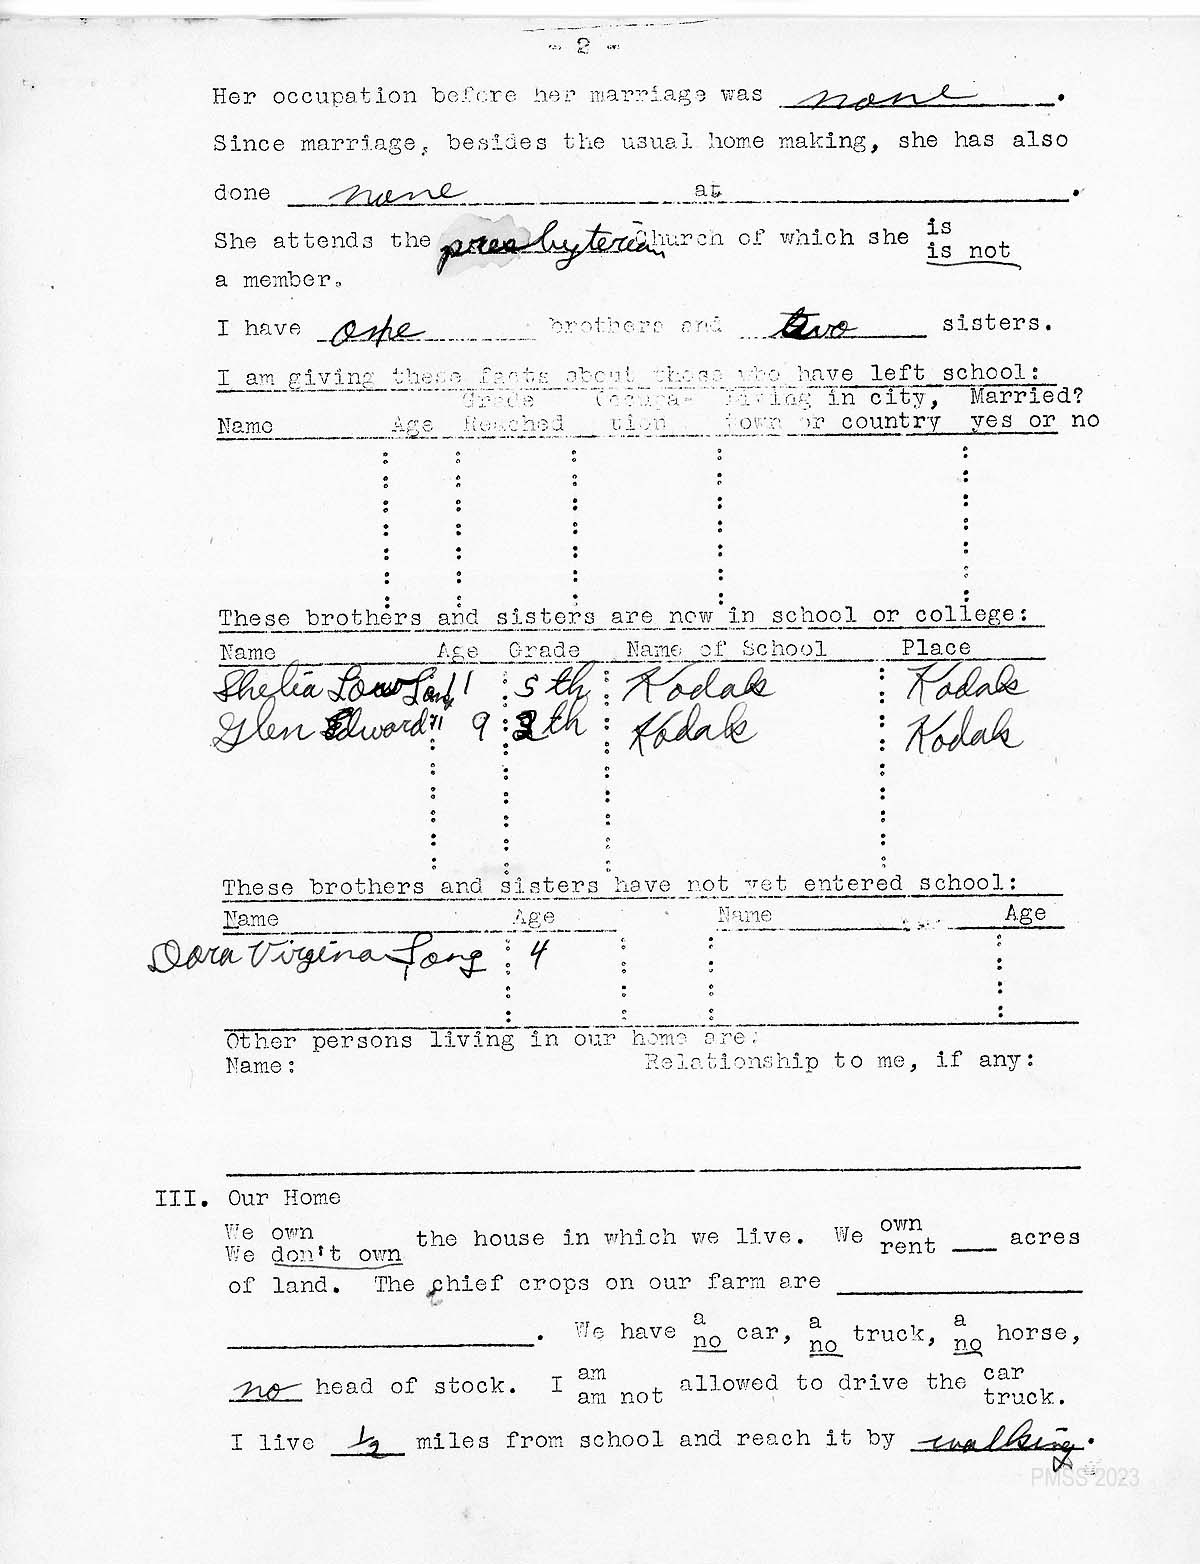 - 2 -
Her occupation before her marriage was none.
Since marriage, besides the usual home making, she has also
done none at .
She attends the presbyterian Church of which she is
is not
a member.
I have one brothers and two sisters.
I am giving these facts about those who have left school:
Grade Occupa- Living in city, Married?
Name Age Reached tion town or country yes or no
These brothers and sisters are now in school or college:
Name Age Grade Name of School Place
Shelia Lou Long 11 5th Kodak Kodak
Glen Edward " 9 2th Kodak Kodak
These brothers and sisters have not yet entered school:
Name Age Name Age
Dora Virgina Long 4
Other persons living in our home are:
Name: Relationship to me, if any:
III. Our Home
We own
We don't own the house in which we live. We own
rent ___ acres
of land. The chief crops on our farm are
. We have a
no car, a
no truck, a
no horse,
no head of stock. I am
am not allowed to drive the car
truck.
I live 1/2 miles from school and reach it by walking.
PMSS 2023